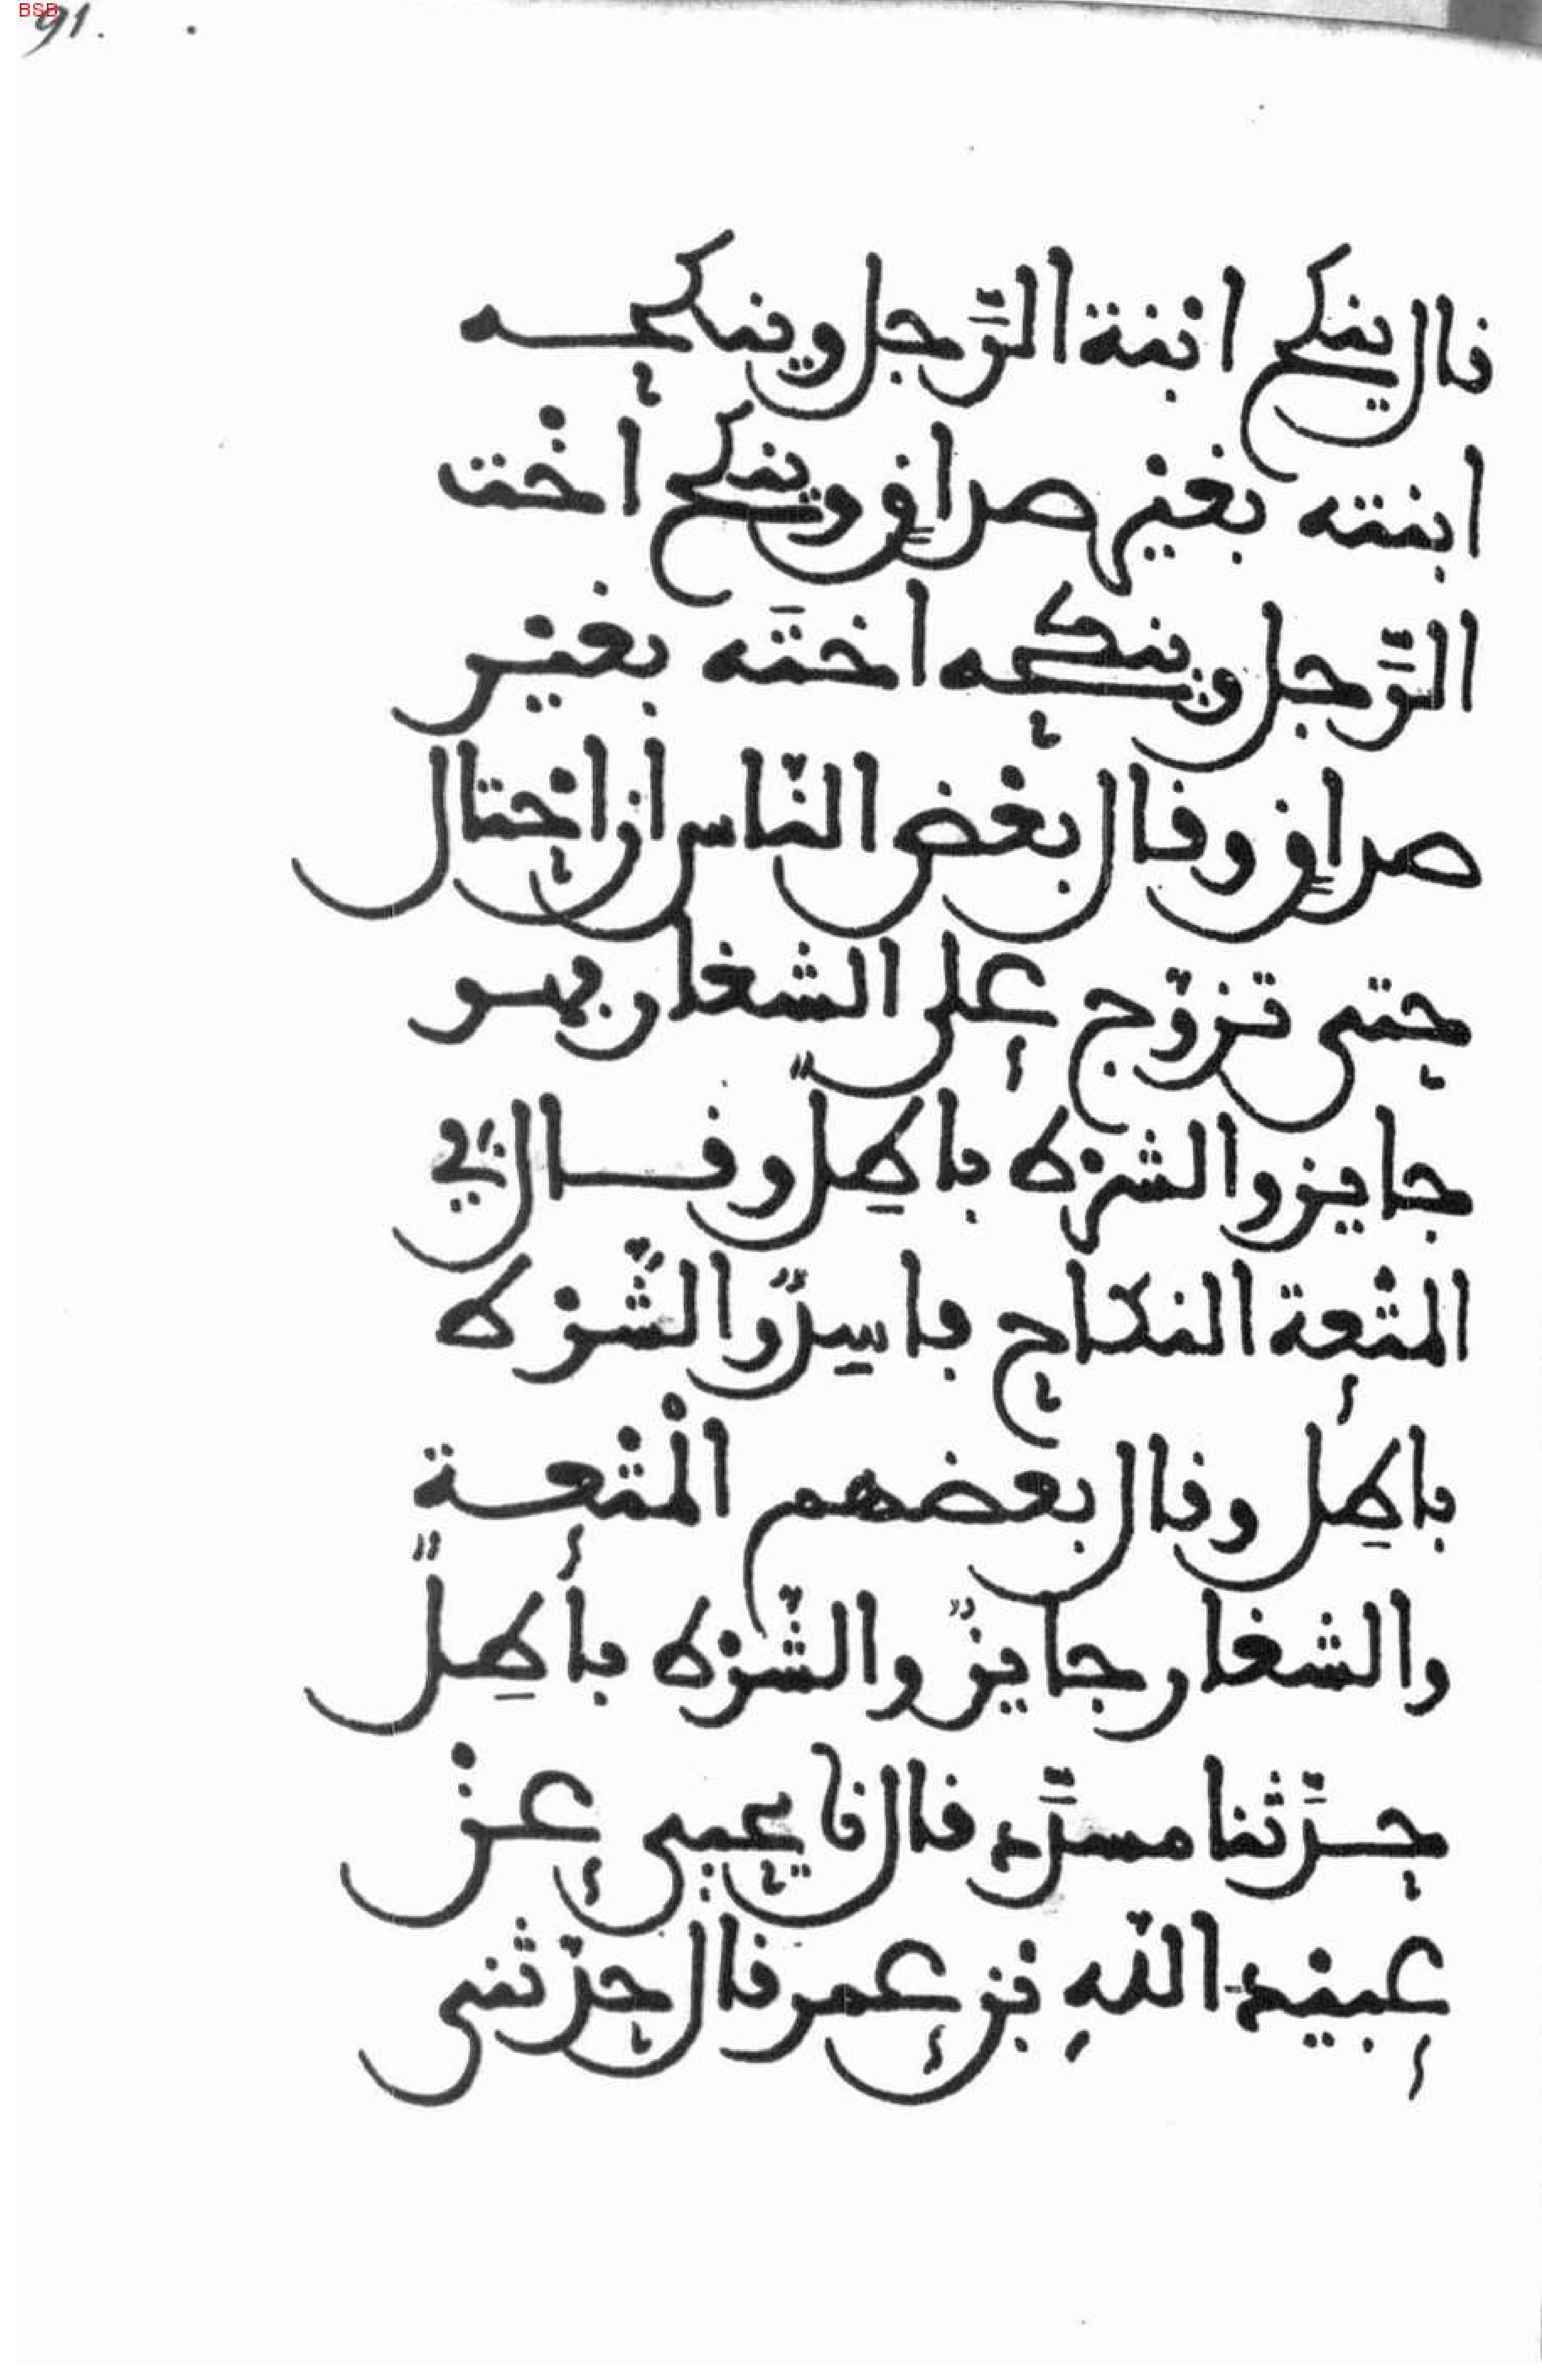 BSB
91.
قال ينكح ابنة الرّجل وينكحه
ابنته بغير صداق وينكح اخت
الرّجل وينكحه اخته بغير
صداق وقال بعض النّاس ان احتال
حتى تزوّج على الشغار فهو
جايز والشرط باطل وقال في
المتعة النكاح فاسدٌ والشّرط
باطل وقال بعضهم المتعة
والشغار جايزٌ والشّرط باطلٌ
حدّثنا مسدّد قال نا يحيى عن
عبيد اللّه بن عمر قال حدّثنى